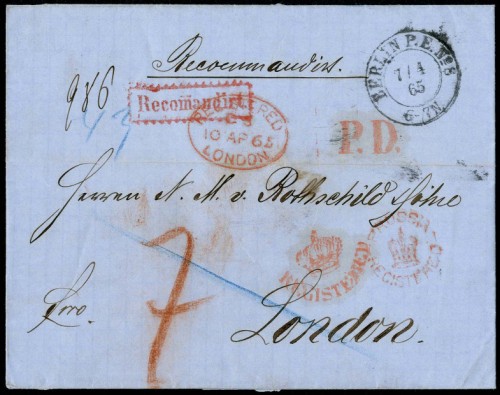 Recommandirt.
BERLIN P.E. No 8
7/4
65
6-7N
986
43
Recomandirt
REGISTERED
C
10 AP 65
LONDON
P.D.
Herren N. M. v. Rothschild Söhne
REGISTERED
PRUSSIA
REGISTERED
7
fro
London.